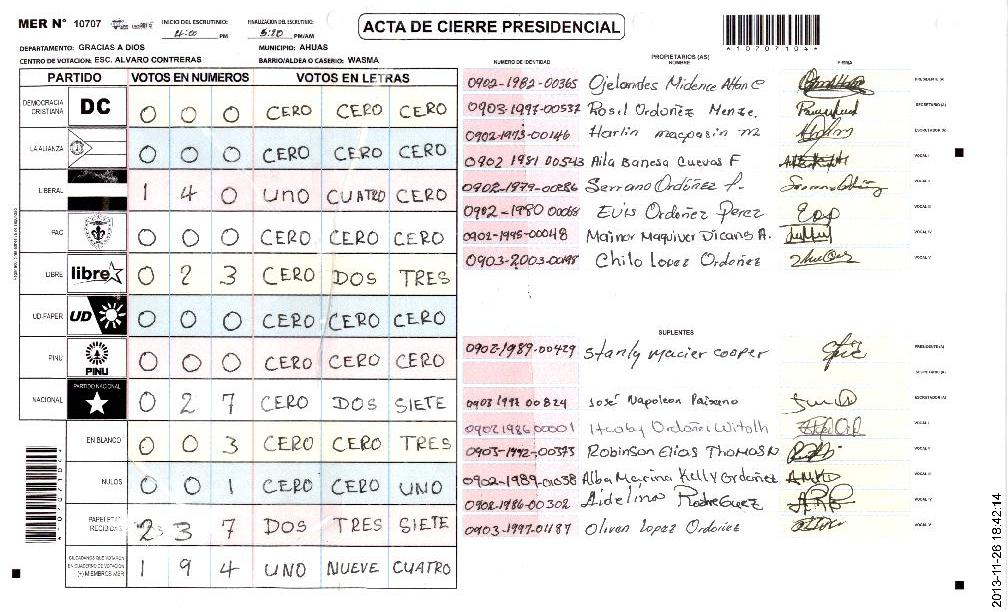 MER N° 10707 INICIO DEL ESCRUTINIO: 4:00 PM FINALIZACIÓN DEL ESCRUTINIO: 5:20 PM/AM
ACTA DE CIERRE PRESIDENCIAL
DEPARTAMENTO: GRACIAS A DIOS MUNICIPIO: AHUAS
CENTRO DE VOTACION: ESC. ALVARO CONTRERAS BARRIO/ALDEA O CASERIO: WASMA
PARTIDO VOTOS EN NUMEROS VOTOS EN LETRAS
DEMOCRACIA CRISTIANA DC 0 0 0 CERO CERO CERO
LA ALIANZA 0 0 0 CERO CERO CERO
LIBERAL 1 4 0 UNO CUATRO CERO
PAC 0 0 0 CERO CERO CERO
LIBRE libre 0 2 3 CERO DOS TRES
UD-FAPER UD 0 0 0 CERO CERO CERO
PINU PINU 0 0 0 CERO CERO CERO
NACIONAL PARTIDO NACIONAL 0 2 7 CERO DOS SIETE
EN BLANCO 0 0 3 CERO CERO TRES
NULOS 0 0 1 CERO CERO UNO
PAPELETAS RECIBIDAS 2 3 7 DOS TRES SIETE
CIUDADANOS QUE VOTARON EN CUADERNO DE VOTACION (+) MIEMBROS MER 1 9 4 UNO NUEVE CUATRO
A10707104
PROPIETARIOS (AS)
NUMERO DE IDENTIDAD NOMBRE FIRMA
0902-1982-00365 Ojelandes Midence PRESIDENTE (A)
0903-1997-00537 Rosil Ordoñez SECRETARIO (A)
0902-1973-00146 Harlin ESCRUTADOR (A)
0902 1981 00543 Aila Banesa Cuevas F VOCAL I
0902-1979-00286 Serrano Ordóñez P. VOCAL II
0902-1980 00068 Evis Ordoñez Perez VOCAL III
0901-1995-00048 Mainor Maquiver Dicans A. VOCAL IV
0903-2003-00198 Chilo Lopez Ordoñez VOCAL V
SUPLENTES
0902-1989-00429 Stanly macier cooper PRESIDENTE (A)
SECRETARIO (A)
0903 1992 00824 José Napoleon Paisano ESCRUTADOR (A)
0902 1986 00001 VOCAL I
0903-1992-00375 Robinson Elias Thomas N VOCAL II
0902-1989-01038 Alba Marina Kelly Ordoñez VOCAL III
0902-1986-00302 Aidelina Rodriguez VOCAL IV
0903-1997-01187 Oliven Lopez Ordoñez VOCAL V
2013-11-26 18:42:14